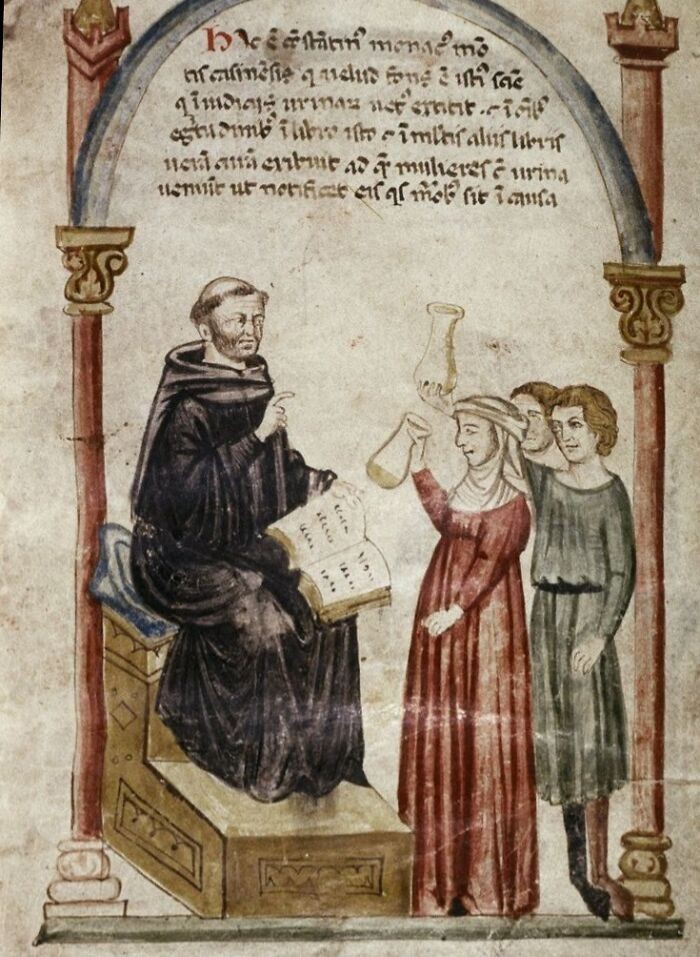 Hic ē ꝯstātin᷒ monac᷒ mō
tis casinēsis q uelud fons ē isti᷒ sciē
q ī iudiciis urinaꝝ uer᷒ extitit ⁊ ī oīb᷒
egͥtudinib᷒ ī libro isto ⁊ ī multis aliis libris
uerā curā exibuit ad quē mulieres cū urina
ueniūt ut notificet eis qis morb᷒ sit ī causa